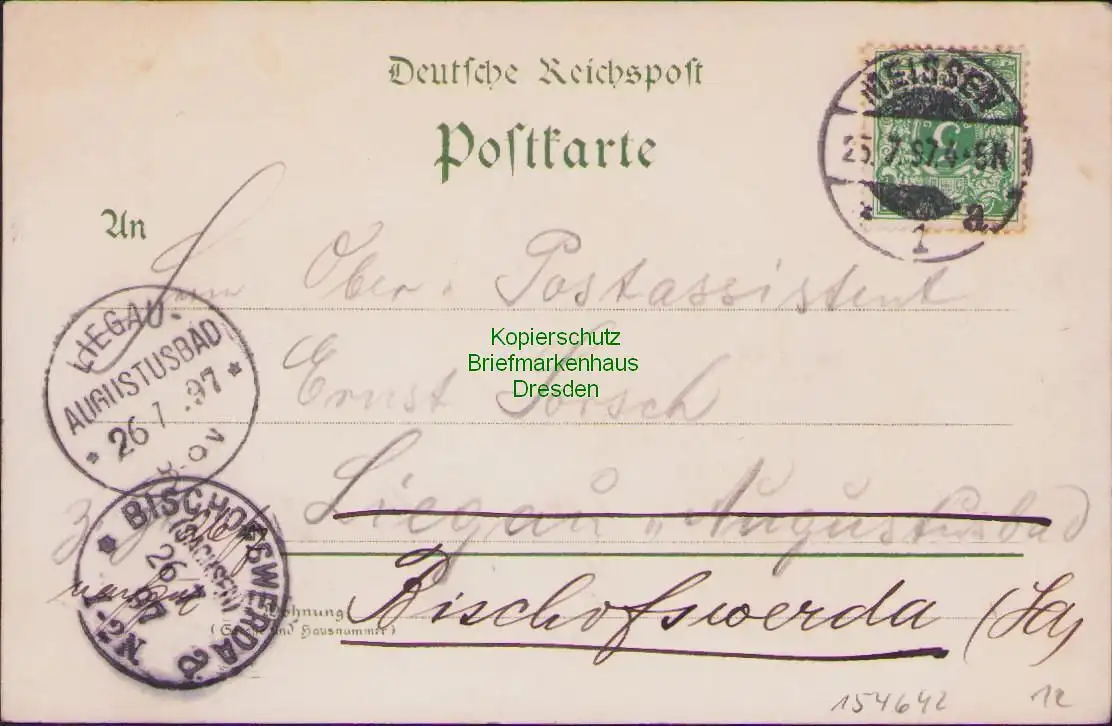 Deutsche Reichspost
Postkarte
MEISSEN
25.7.97.4-5N
1 a.
An
Ober-Postassistent
Ernst
Liegau-Augustusbad
Bischofswerda (Sa)
Wohnung
(Straße und Hausnummer)
LIEGAU-
AUGUSTUSBAD
* 26 7 .97 *
8-9V
BISCHOFSWERDA
(SACHSEN)
26 7
97
1-2N
Kopierschutz
Briefmarkenhaus
Dresden
154642
12